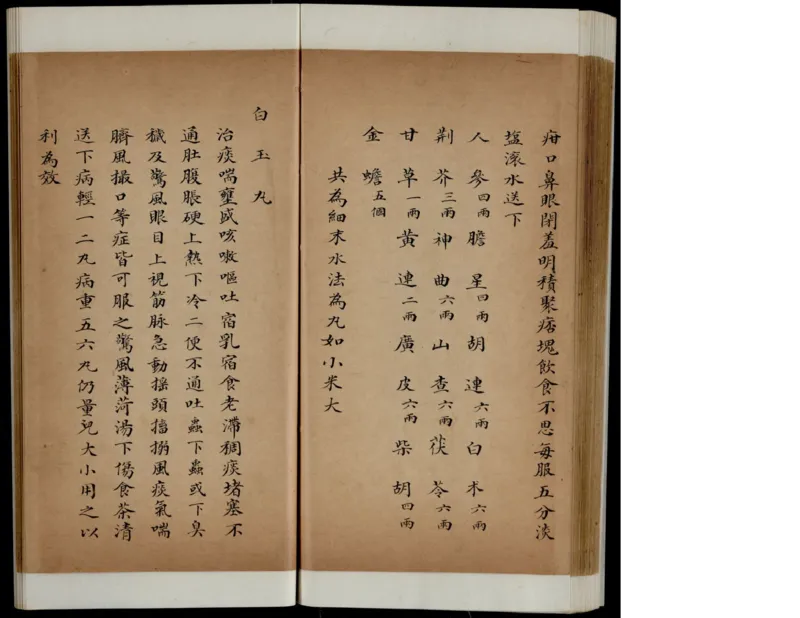 疳口鼻眼閉羞明積聚痞塊飲食不思每服五分淡
塩滾水送下
人參四兩 膽星四兩 胡連六兩 白朮六兩
荆芥三兩 神曲六兩 山查六兩 茯苓六兩
甘草一兩 黄連二兩 廣皮六兩 柴胡四兩
金蟾五個
共為細末水法為丸如小米大
白玉丸
治痰喘壅盛咳嗽嘔吐宿乳宿食老滯稠痰堵塞不
通肚腹脹硬上熱下冷二便不通吐蟲下蟲或下臭
穢及驚風眼目上視筋脉急動搖頭搐搦風痰氣喘
臍風撮口等症皆可服之驚風薄荷湯下傷食茶清
送下病輕一二丸病重五六丸仍量兒大小用之以
利為效